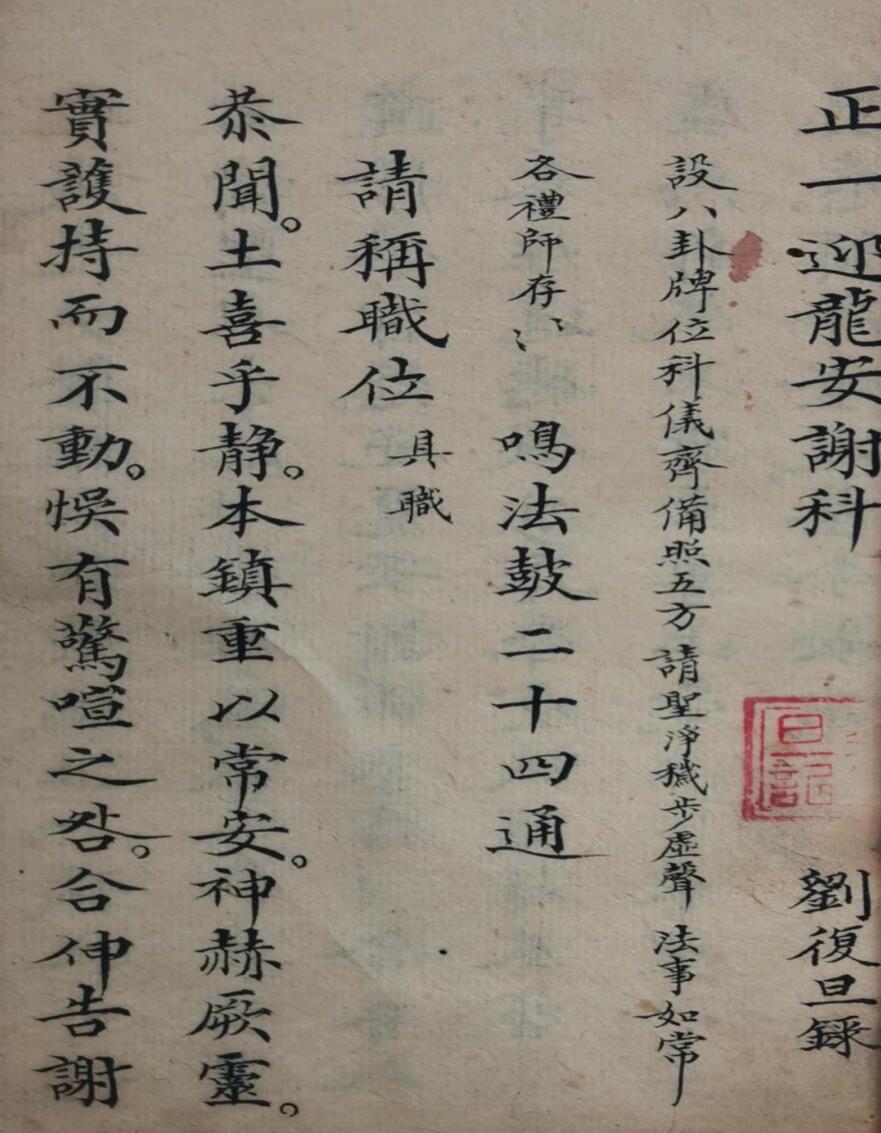 正一迎龍安謝科 劉復旦錄
旦記
設八卦牌位科儀齊備照五方請聖淨穢步虛聲法事如常
各禮師存〻 鳴法鼓二十四通
請稱職位 具職
恭聞。土喜乎静。本鎮重以常安。神赫厥靈。
實護持而不動。悞有驚喧之咎。合伸告謝